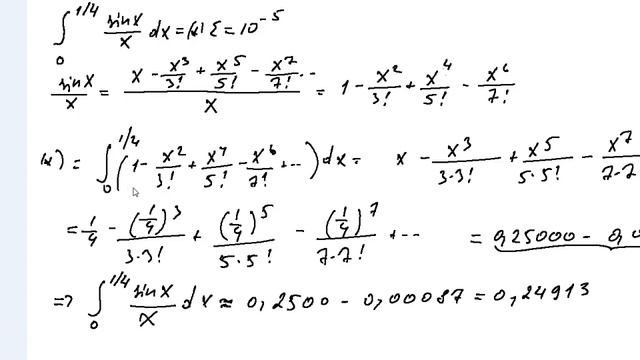 ∫₀^1/4 sinx/x dx = (*) ξ = 10^-5
sinx/x = (x - x³/3! + x⁵/5! - x⁷/7! ...)/x = 1 - x²/3! + x⁴/5! - x⁶/7!
(*) = ∫₀^1/4 (1 - x²/3! + x⁴/5! - x⁶/7! + ...) dx = x - x³/3·3! + x⁵/5·5! - x⁷/7·7
= 1/4 - (1/4)³/3·3! + (1/4)⁵/5·5! - (1/4)⁷/7·7! + ... = 0,25000 - 0,0
=> ∫₀^1/4 sinx/x dx ≈ 0,2500 - 0,00087 = 0,24913